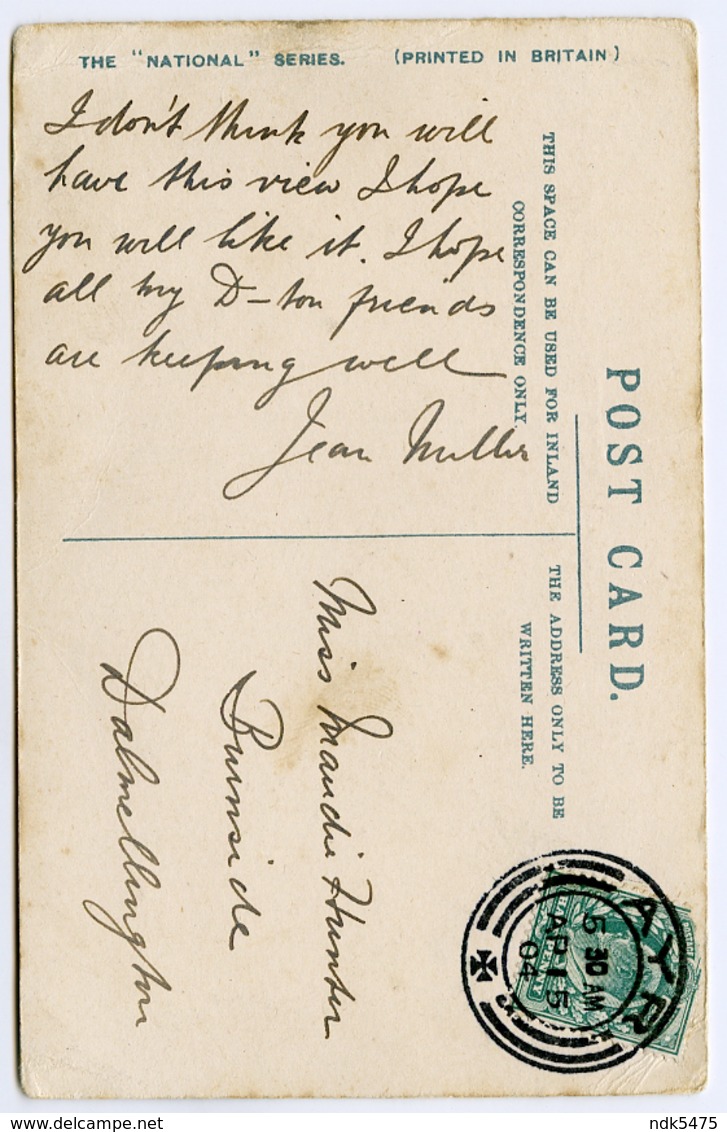 THE "NATIONAL" SERIES. (PRINTED IN BRITAIN)
I don't think you will
have this view I hope
you will like it. I hope
all my D-ton friends
are keeping well
Jean Miller
POST CARD.
THIS SPACE CAN BE USED FOR INLAND
CORRESPONDENCE ONLY
THE ADDRESS ONLY TO BE
WRITTEN HERE.
Miss Maudie Hunter
Burnside
Dalmellington
AYR
5 30 AM
AP 15
04
POSTAGE
delcampe.net
ndk5475